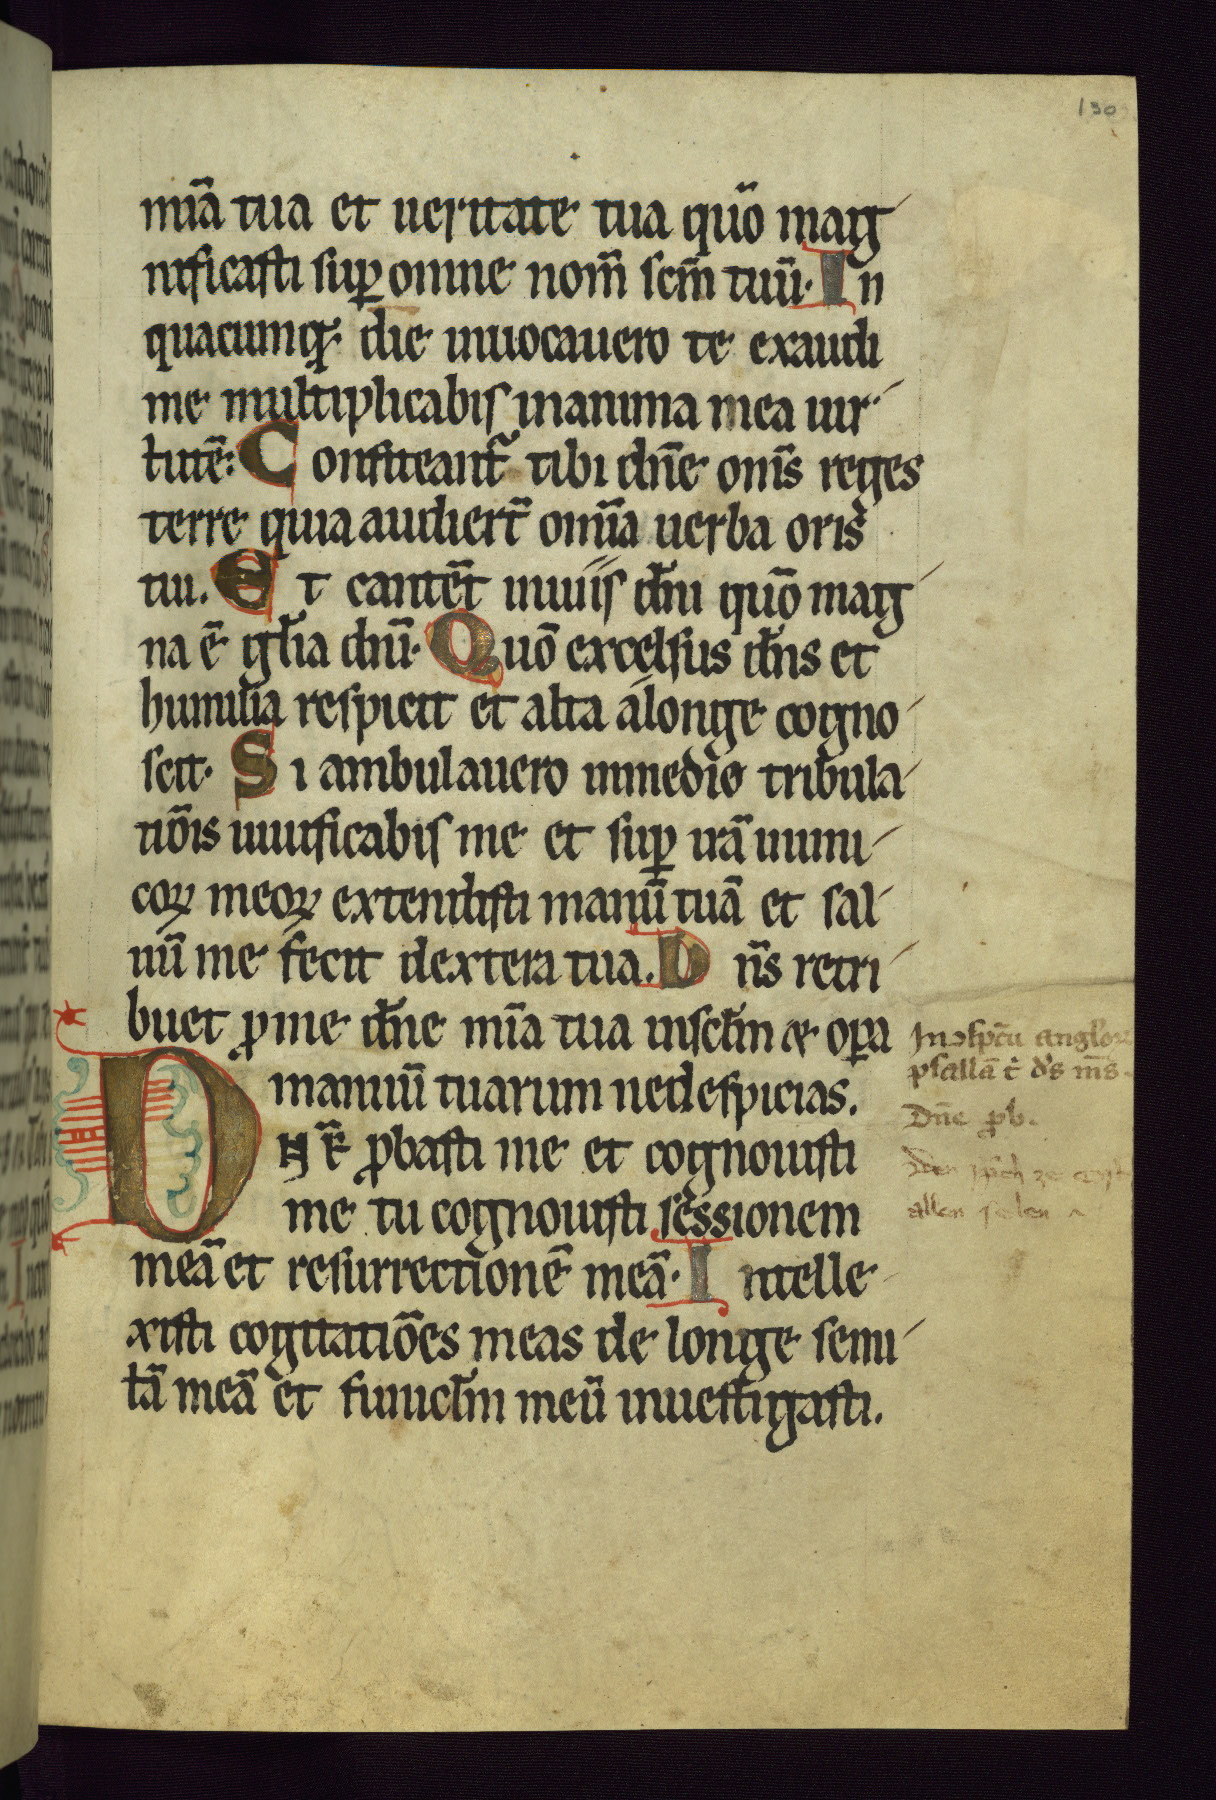 130
mia͞ tua et ueritate tua quo͞ mag
nificasti sup̲ omne nom̄ sc̄m tuū. In
quacumq; die inuocauero te exaudi
me multiplicabis inanima mea uir
tutē: Confiteant᷑ tibi dn̄e om̄s reges
terre quia audiert̄ omīa uerba oris
tui. Et cantēt inuiis dn̄i quō mag
na ē gl̄ia dn̄i. Quō excelsus dn̄s et
humilia respicit et alta alonge cogno
scit. Si ambulauero inmedio tribula
tiōis uiuificabis me et sup̲ irā inimi
coꝝ meoꝝ extendisti manū tuā et sal
uū me fecit dextera tua. Dn̄s retri
buet ꝓme dn̄e mīa tua insc̄lm ⁊ op̲a
manuū tuarum nedespicias.
DNĒ ꝓbasti me et cognouisti
me tu cognouisti sessionem
meā et resurrectionē meā. Intelle
xisti cogitatiōes meas de longe semi
tā meā et funicl̄m meū inuestigasti.
In ↄsp̄ctu angl̄oꝝ
psallā t̄ ds̄ ms̄.
Dn̄e ꝓb.
allen